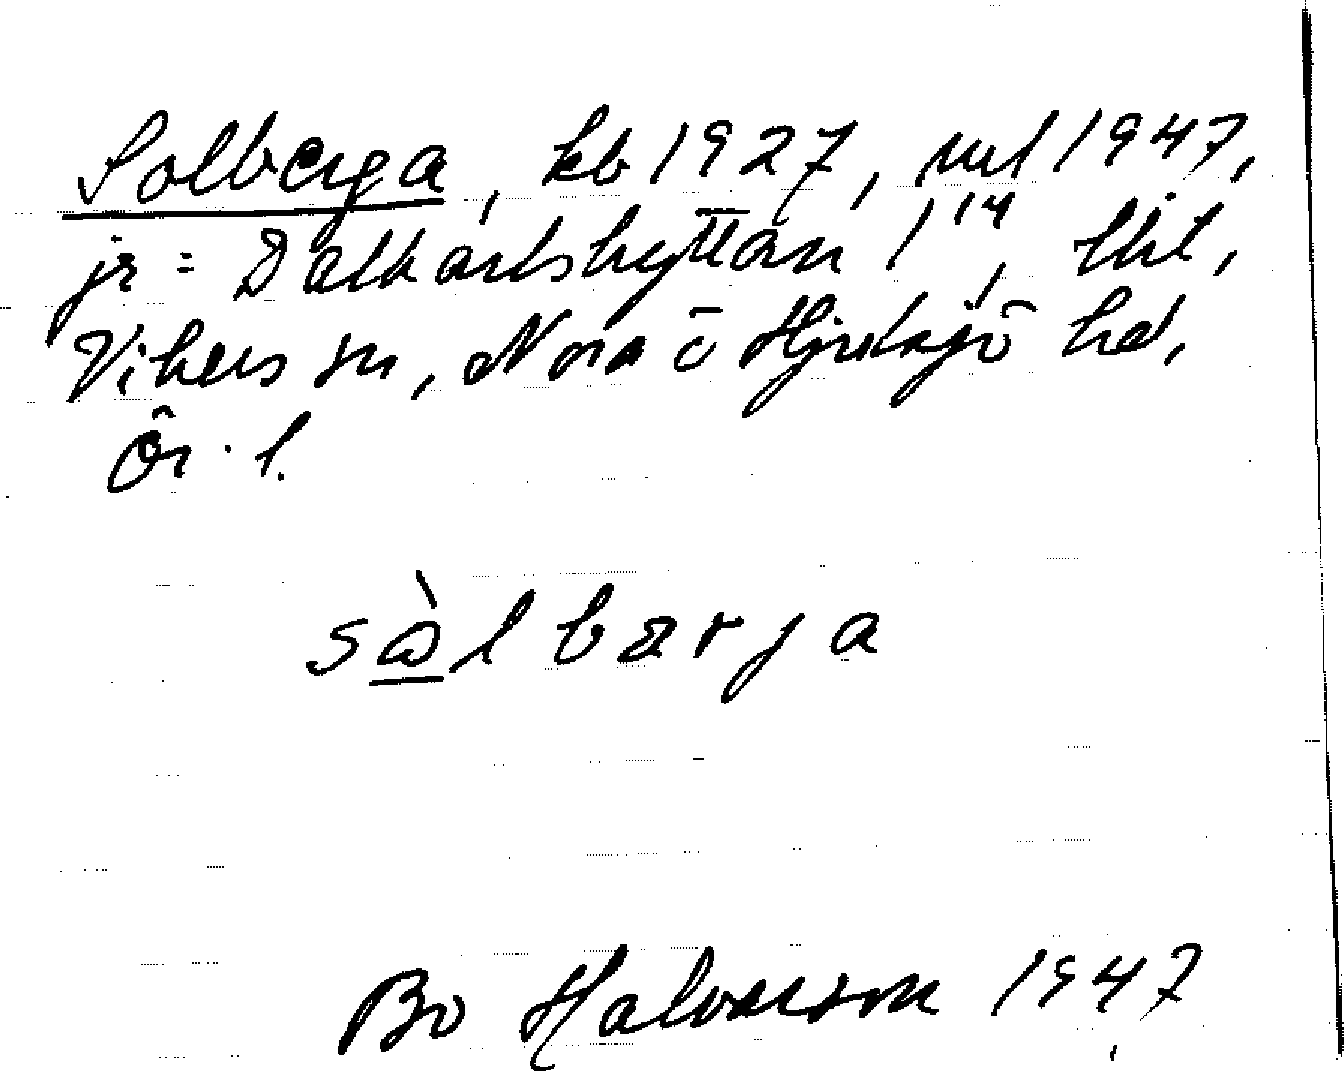 Solberga, kb 1927, ml 1947,
jr = Dalkarlshyttan 1¹⁴, tht,
Vikers sn, Nora o Hjulsjö hd,
Ör. l.
sàlbærja
Bo Halvarson 1947